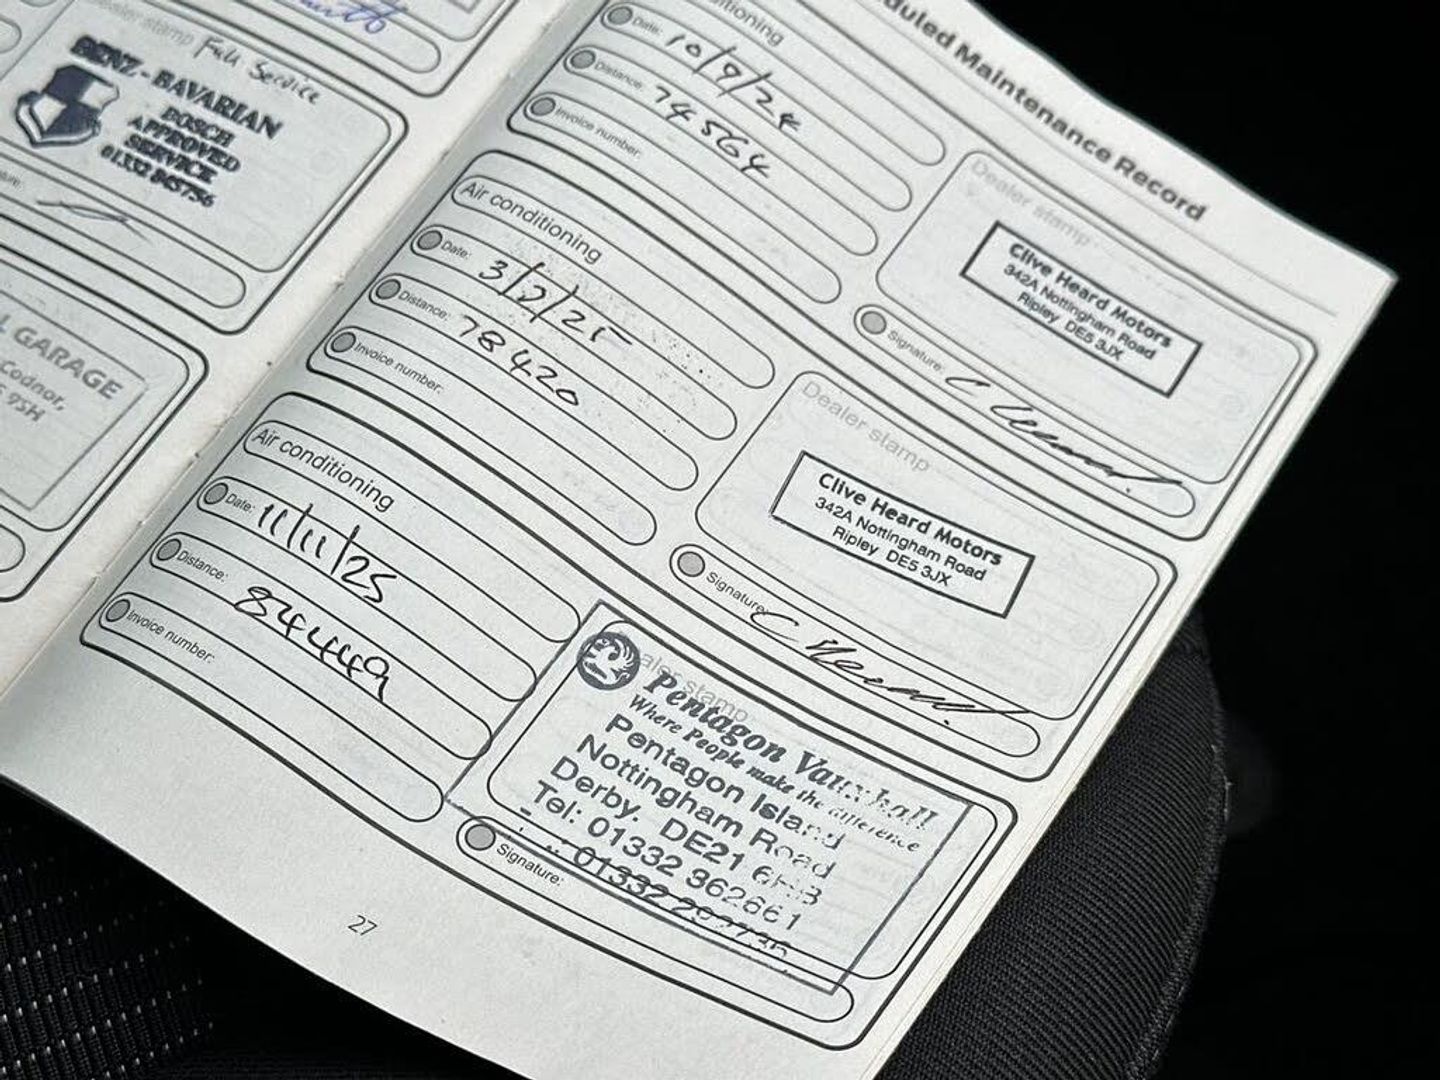 dealer stamp Full Service
BENZ - BAVARIAN
BOSCH
APPROVED
SERVICE
01332 865756
GARAGE
Codnor,
9SH
Scheduled Maintenance Record
Air conditioning
Date: 10/9/24
Distance: 74564
Invoice number:
Dealer stamp
Clive Heard Motors
342A Nottingham Road
Ripley DE5 3JX
Signature: C Heard.
Air conditioning
Date: 3/2/25
Distance: 78420
Invoice number:
Dealer stamp
Clive Heard Motors
342A Nottingham Road
Ripley DE5 3JX
Signature: C Heard.
Air conditioning
Date: 11/11/25
Distance: 84449
Invoice number:
Dealer stamp
Pentagon Vauxhall
Where People make the difference
Pentagon Island
Nottingham Road
Derby. DE21
Tel: 01332 362661
Signature:
27